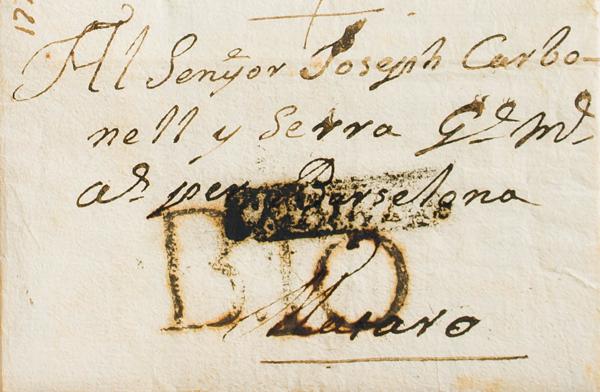 17
Al Senyor Joseph Carbo-
nell y Serra Gde. Md.
as. per Barselona
BIO
Mataro